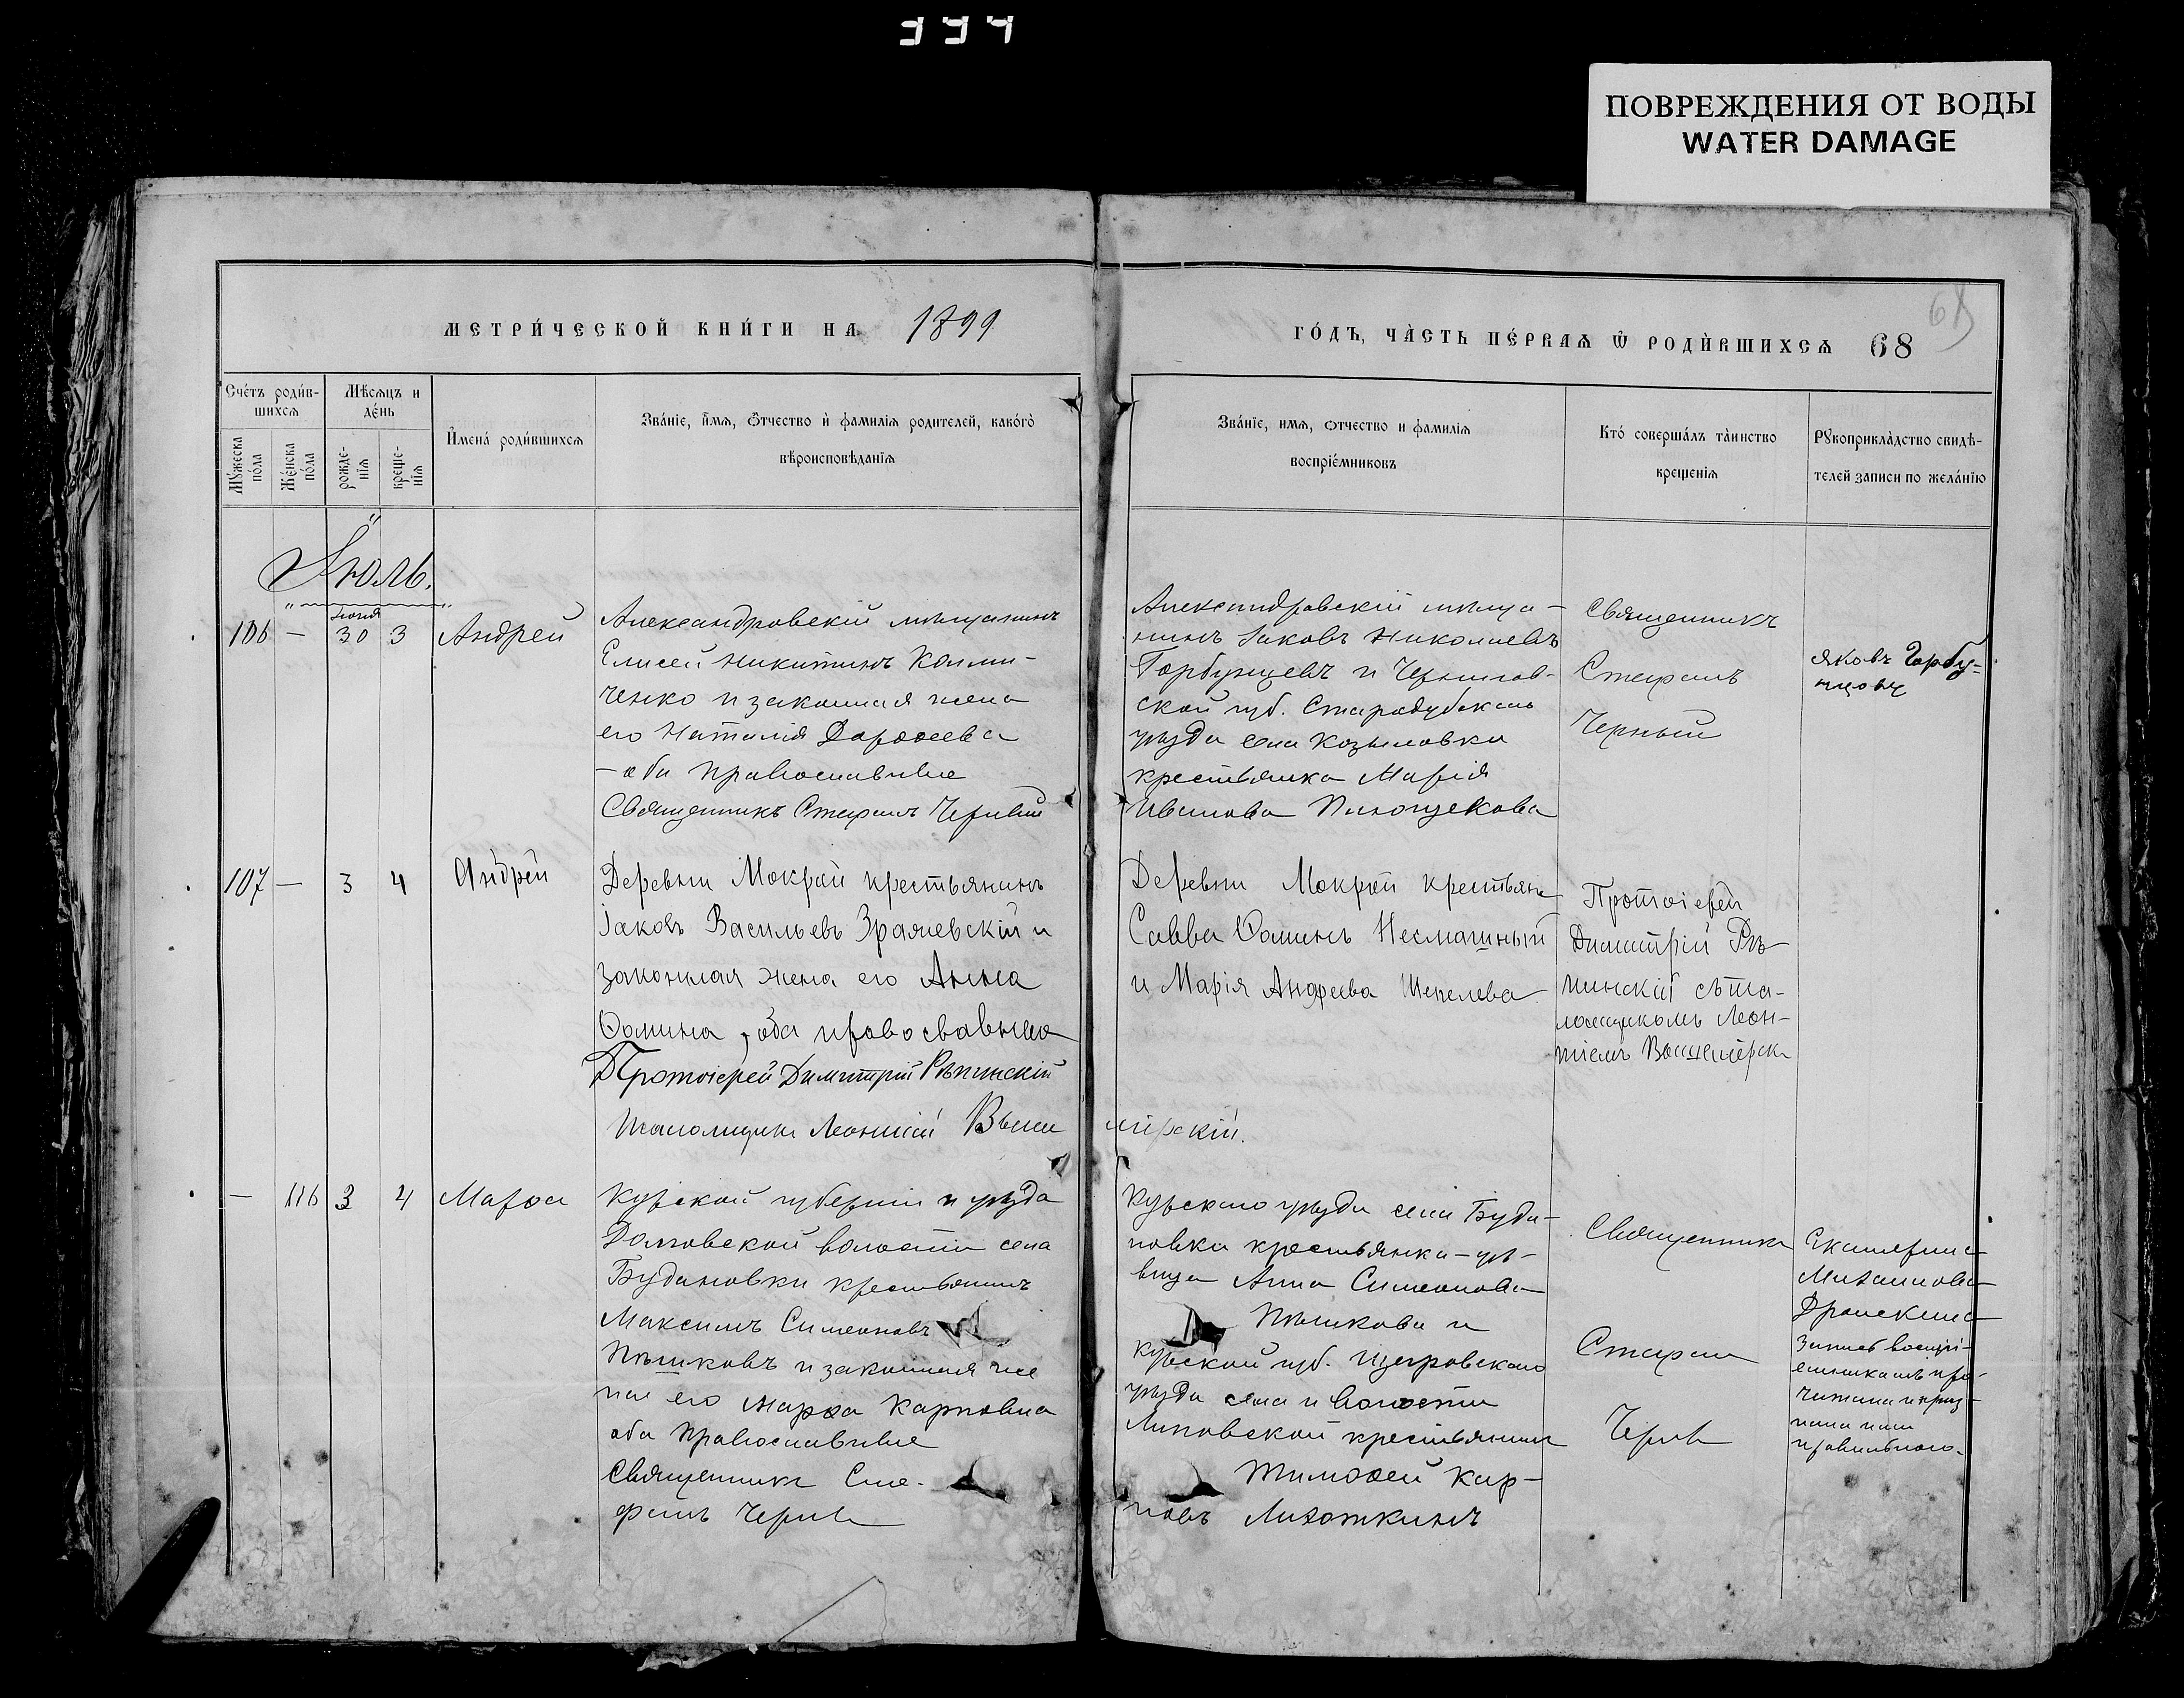 394
ПОВРЕЖДЕНИЯ ОТ ВОДЫ
WATER DAMAGE
МЕТРИ́ЧЕСКОЙ КНИ́ГИ НА 1899
ГО́ДЪ, ЧА̀СТЬ ПЕ́РВАѦ Ѿ РОДИ́ВШИХСѦ 68
68
Счéтъ роди́в-
шихсѧ
Мѣ́сѧцъ и
дéнь
Мꙋ́жеска
по́ла
Же́нска
по́ла
рожде-
нїѧ
креще-
нїѧ
И҆мена́ роди́вшихсѧ
Зва́нїе, и҆́мѧ, ѻ҆́тчество и҆ фамилїѧ родителей, како́гѡ
вѣроисповѣданїѧ
Зва́нїе, имѧ, ѻтчество и фамилїѧ
воспрїе́мниковъ
Кто́ совершáлъ тáинство
крещенїѧ
Рꙋкоприклáдство свидѣ-
телей записи по желáнїю
Іюль.
106 — Іюня 30 3 Андрей
Александровскій мѣщанинъ
Елисей Никитинъ Калми-
ченко и законная жена
его Наталія Дороѳеева
— оба православные
Священникъ Стефанъ Черный
Александровскій мѣща-
нинъ Іаковъ Николаевъ
Горбунцевъ и Чернигов-
ской губ. Стародубскаго
уѣзда села
крестьянка Марія
Иванова
Священникъ
Стефанъ
Черный
Яковъ Горбу-
нцовъ
107 — 3 4 Андрей
Деревни Мокрой крестьянинъ
Іаковъ Васильевъ Зражевскій и
законная жена его Анна
Ѳомина, оба православные
Протоіерей Димитрій Рѣпинскій
Псаломщикъ Леонтій
мірскій.
Деревни Мокрой крестьяне
Савва Ѳоминъ Несмашный
и Марія Андреева Шепелева
Протоіерей
Димитрій Рѣ-
пинскій съ пса-
ломщикомъ Леон-
тіемъ
— 116 3 4 Марѳа
Курской губерніи и уѣзда
Долговской волости села
Будановки крестьянинъ
Максимъ Симеоновъ
Пѣшковъ и законная же
на его Марѳа Карповна
оба православные
Священникъ Сте-
фанъ Черный
Курскаго уѣзда села Буда-
новки крестьянка-дѣ-
вица Анна Симеонова
Пѣшкова и
Курской губ. Щигровскаго
уѣзда села и волости
Липовской крестьянинъ
Тимоѳей Кар-
повъ Лихоткинъ
Священникъ
Стефанъ
Черный
Екатерина
Михаилова
Запись воспрі-
емникамъ про-
читана и приз-
нана ими
правильною.